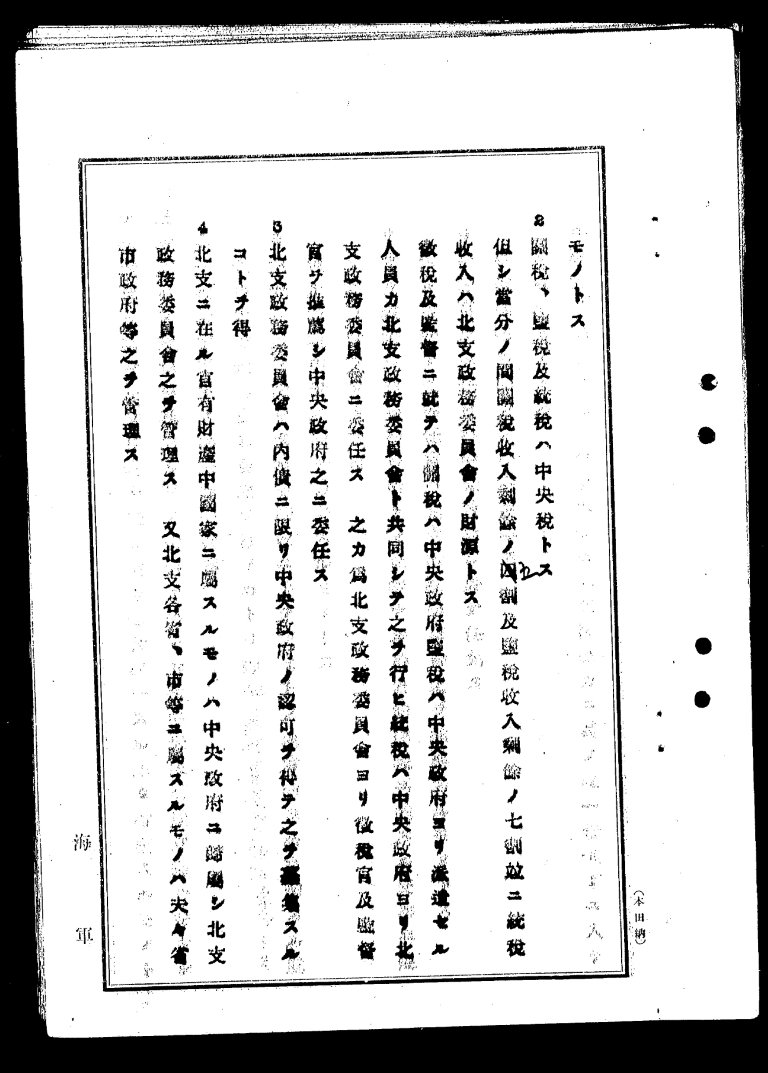 モノトス
2 關稅、鹽稅及統稅ハ中央稅トス
但シ當分ノ間關稅收入剩餘ノ四割及鹽稅收入剩餘ノ七割竝ニ統稅
收入ハ北支政務委員會ノ財源トス
徵稅及監督ニ就テハ關稅ハ中央政府鹽稅ハ中央政府ヨリ派遣セル
人員カ北支政務委員會ト共同シテ之ヲ行ヒ統稅ハ中央政府ヨリ北
支政務委員會ニ委任ス 之カ爲北支政務委員會ヨリ徵稅官及監督
官ヲ推薦シ中央政府之ニ委任ス
3 北支政務委員會ハ內債ニ限リ中央政府ノ認可ヲ得テ之ヲ募集スル
コトヲ得
4 北支ニ在ル官有財產中國家ニ屬スルモノハ中央政府ニ歸屬シ北支
政務委員會之ヲ管理ス 又北支各省、市等ニ屬スルモノハ夫々省
市政府等之ヲ管理ス
海軍
(本田納)